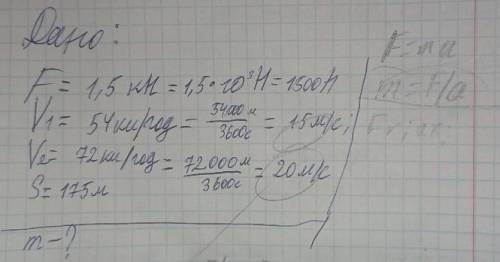 Дано:
F = 1,5 кН = 1,5·10³Н = 1500Н
V1 = 54км/год = 54000м/3600с = 15м/с;
V2 = 72км/год = 72000м/3600с = 20м/с
S = 175м
m - ?
F = ma
m = F/a